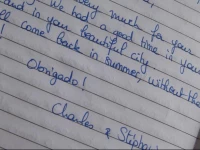 very much for your
We had a good time in your
and in your beautiful city
come back in summer, without the
Obrigado!
Charles &